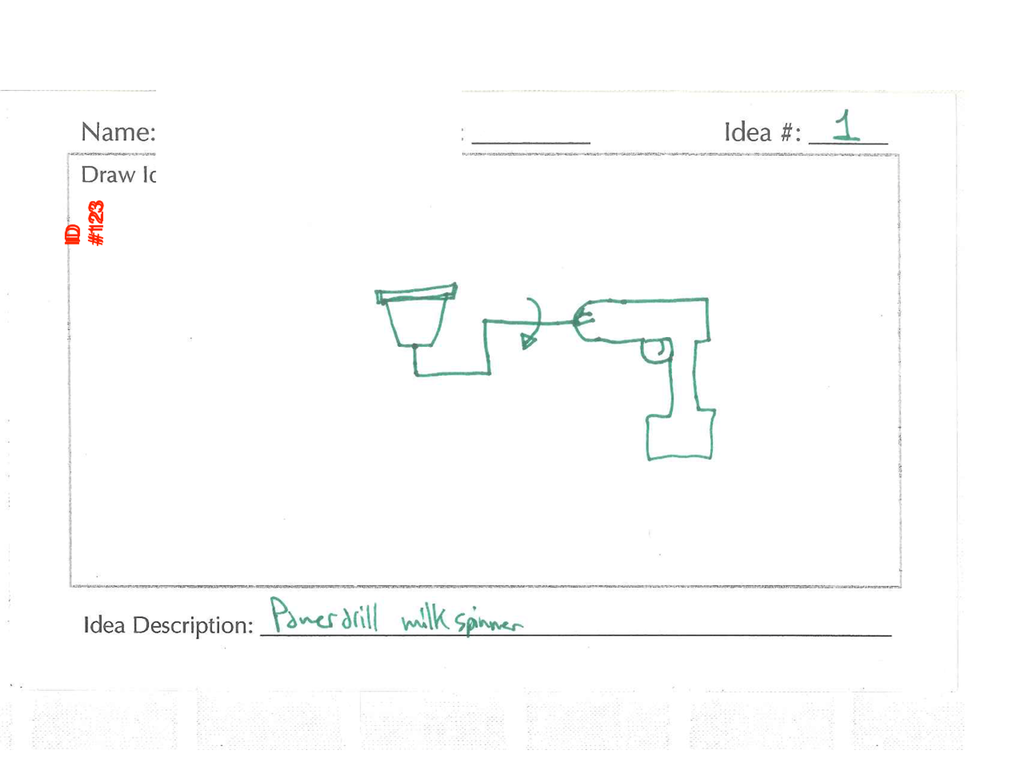 Name: : Idea #: 1
Draw Id
ID
#123
Idea Description: Powerdrill milk spinner